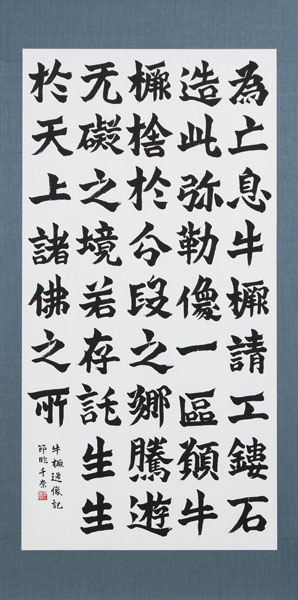 為亡息牛橛請工鏤石
造此弥勒像一區願牛
橛捨於分段之郷騰遊
无礙之境若存託生生
於天上諸佛之所
牛橛造像記
節臨千奈